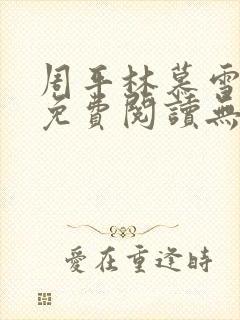 周平林慕雪
免費閱讀無
愛在重逢時